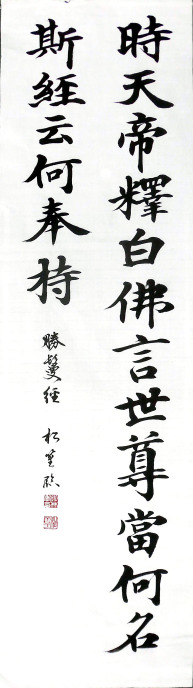 時天帝釋白佛言世尊當何名
斯經云何奉持
勝鬘經
臨